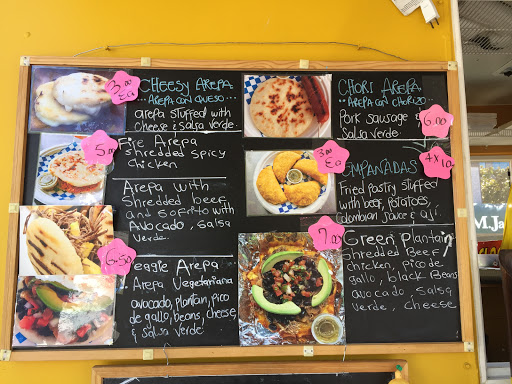 CHEESY AREPA
AREPA CON QUESO
arepa stuffed with
cheese & salsa verde
3.00
Ea
Fire Arepa
shredded spicy
chicken
5.00
Arepa with
shredded beef
and sofrito with
Avocado, salsa
verde
6.50
Veggie Arepa
Arepa Vegetariana
avocado, plantain, pico
de gallo, beans, cheese,
& salsa verde
CHORI AREPA
AREPA CON CHORIZO
Pork sausage &
Salsa verde
6.00
EMPANADAS
Fried pastry stuffed
with beef, potatoes,
colombian sauce & aji.
3.00
Ea
4x10
Green Plantain
Shredded Beef,
chicken, pico de
gallo, black beans
avocado salsa
verde, cheese
7.00
M.Ja